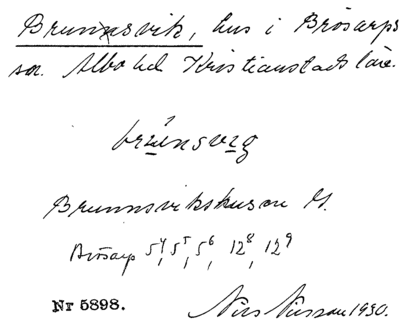 Brunnsvik, hus i Brösarps
sn. Albo hd Kristianstads län.
brúnsvig
Brunnsvikshusen G.
Brösarp 5⁴, 5⁵, 5⁶, 12⁸, 12⁹
Nr 5898.
Nils Nilsson 1930.